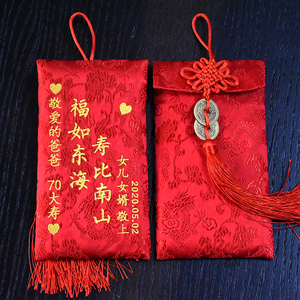 敬爱的爸爸 70大寿
福如东海
寿比南山
女儿女婿敬上
2020.05.02